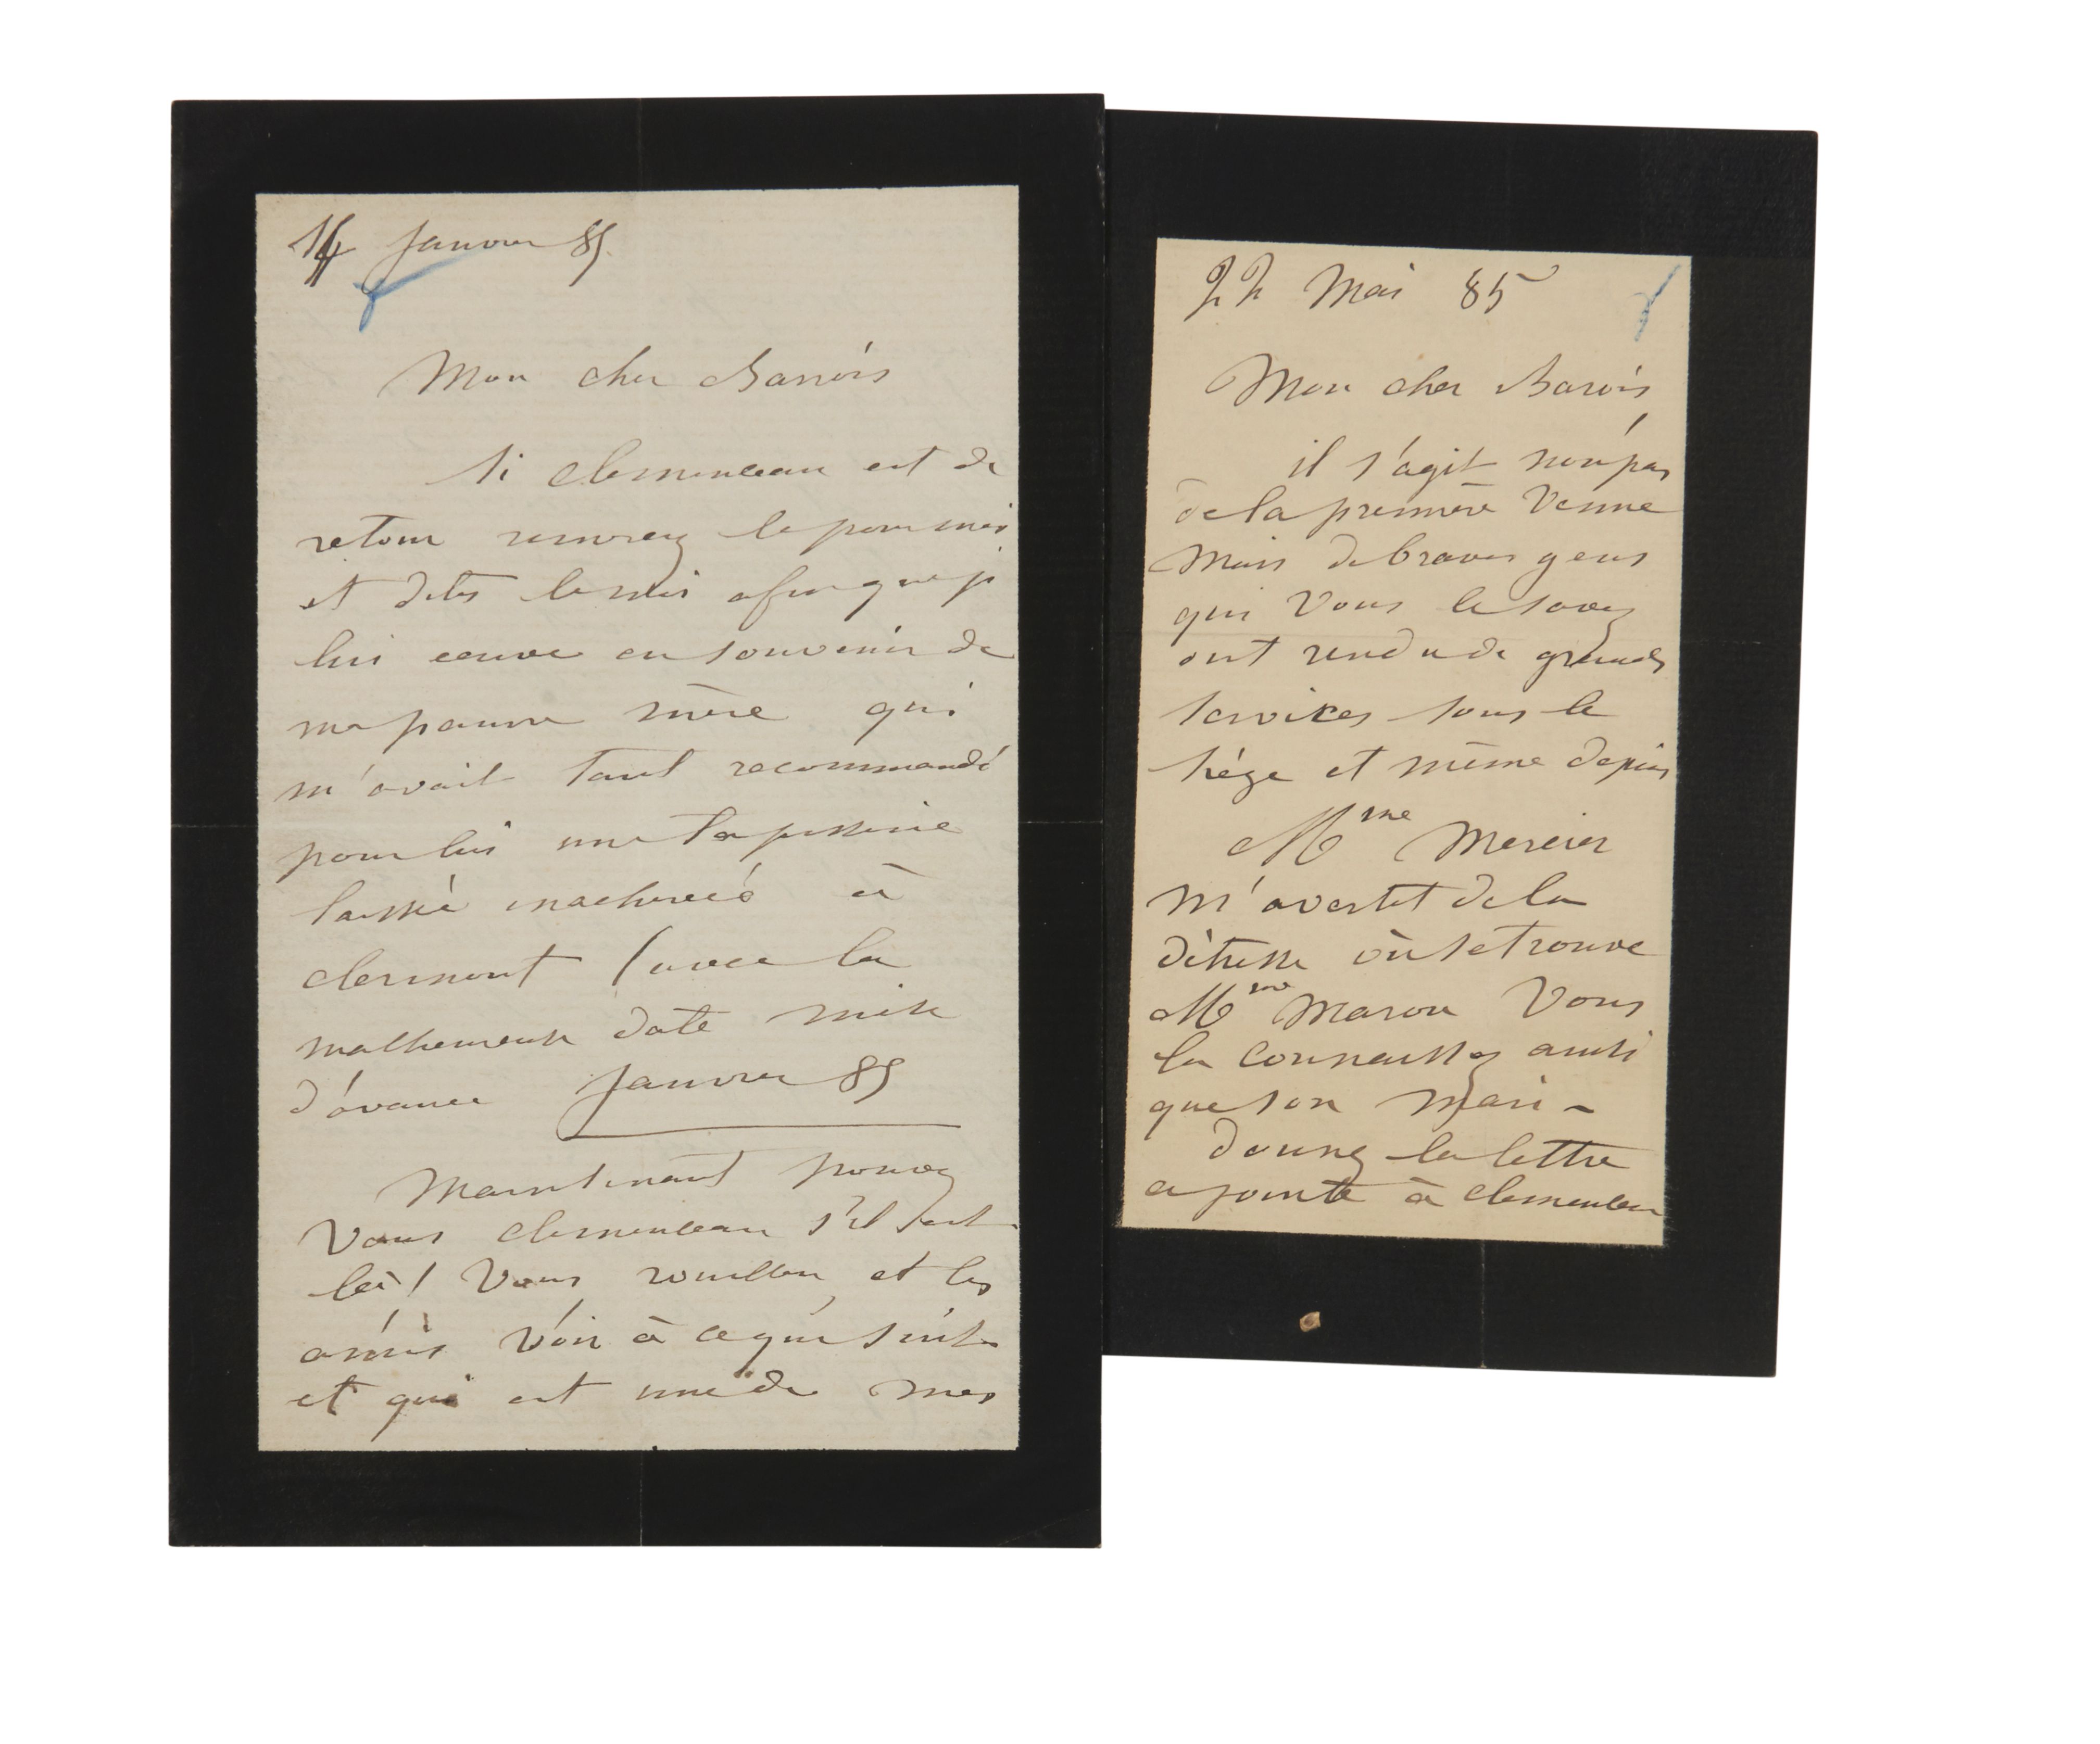 14 Janvier 85.
Mon cher Barrois
Si Clemenceau est de
retour remerciez le pour moi
et dites le moi afin que je
lui envoie en souvenir de
ma pauvre mère qui
m'avait tant recommandé
pour lui une tapisserie
laissée inachevée à
Clermont (avec la
malheureuse date mise
d'avance Janvier 85
Maintenant pouvez
vous Clemenceau s'il est
là ! Vous rouillon et les
amis voir à ce qui suit
et qui est une de mes
22 Mai 85
Mon cher Barois
il s'agit non pas
de la première venue
mais de braves gens
qui vous le savez
ont rendu de grands
services sous le
siège et même depuis
Mme Mercier
m'avertit de la
détresse où se trouve
Mme Marou Vous
la connaissez ainsi
que son mari -
donnez la lettre
ci jointe à Clemenceau